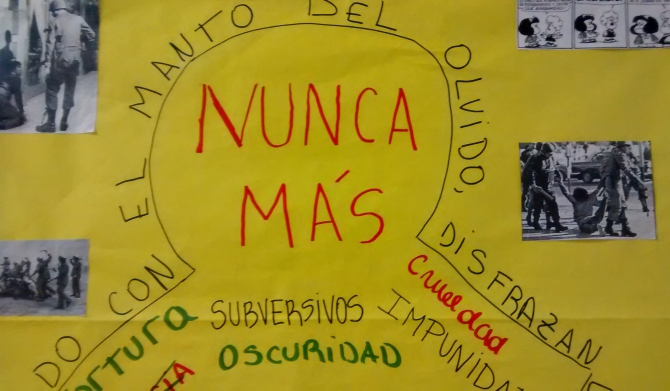 DO CON EL MANTO DEL OLVIDO, DISFRAZAN
NUNCA
MÁS
crueldad
SUBVERSIVOS
IMPUNIDA
tortura
OSCURIDAD